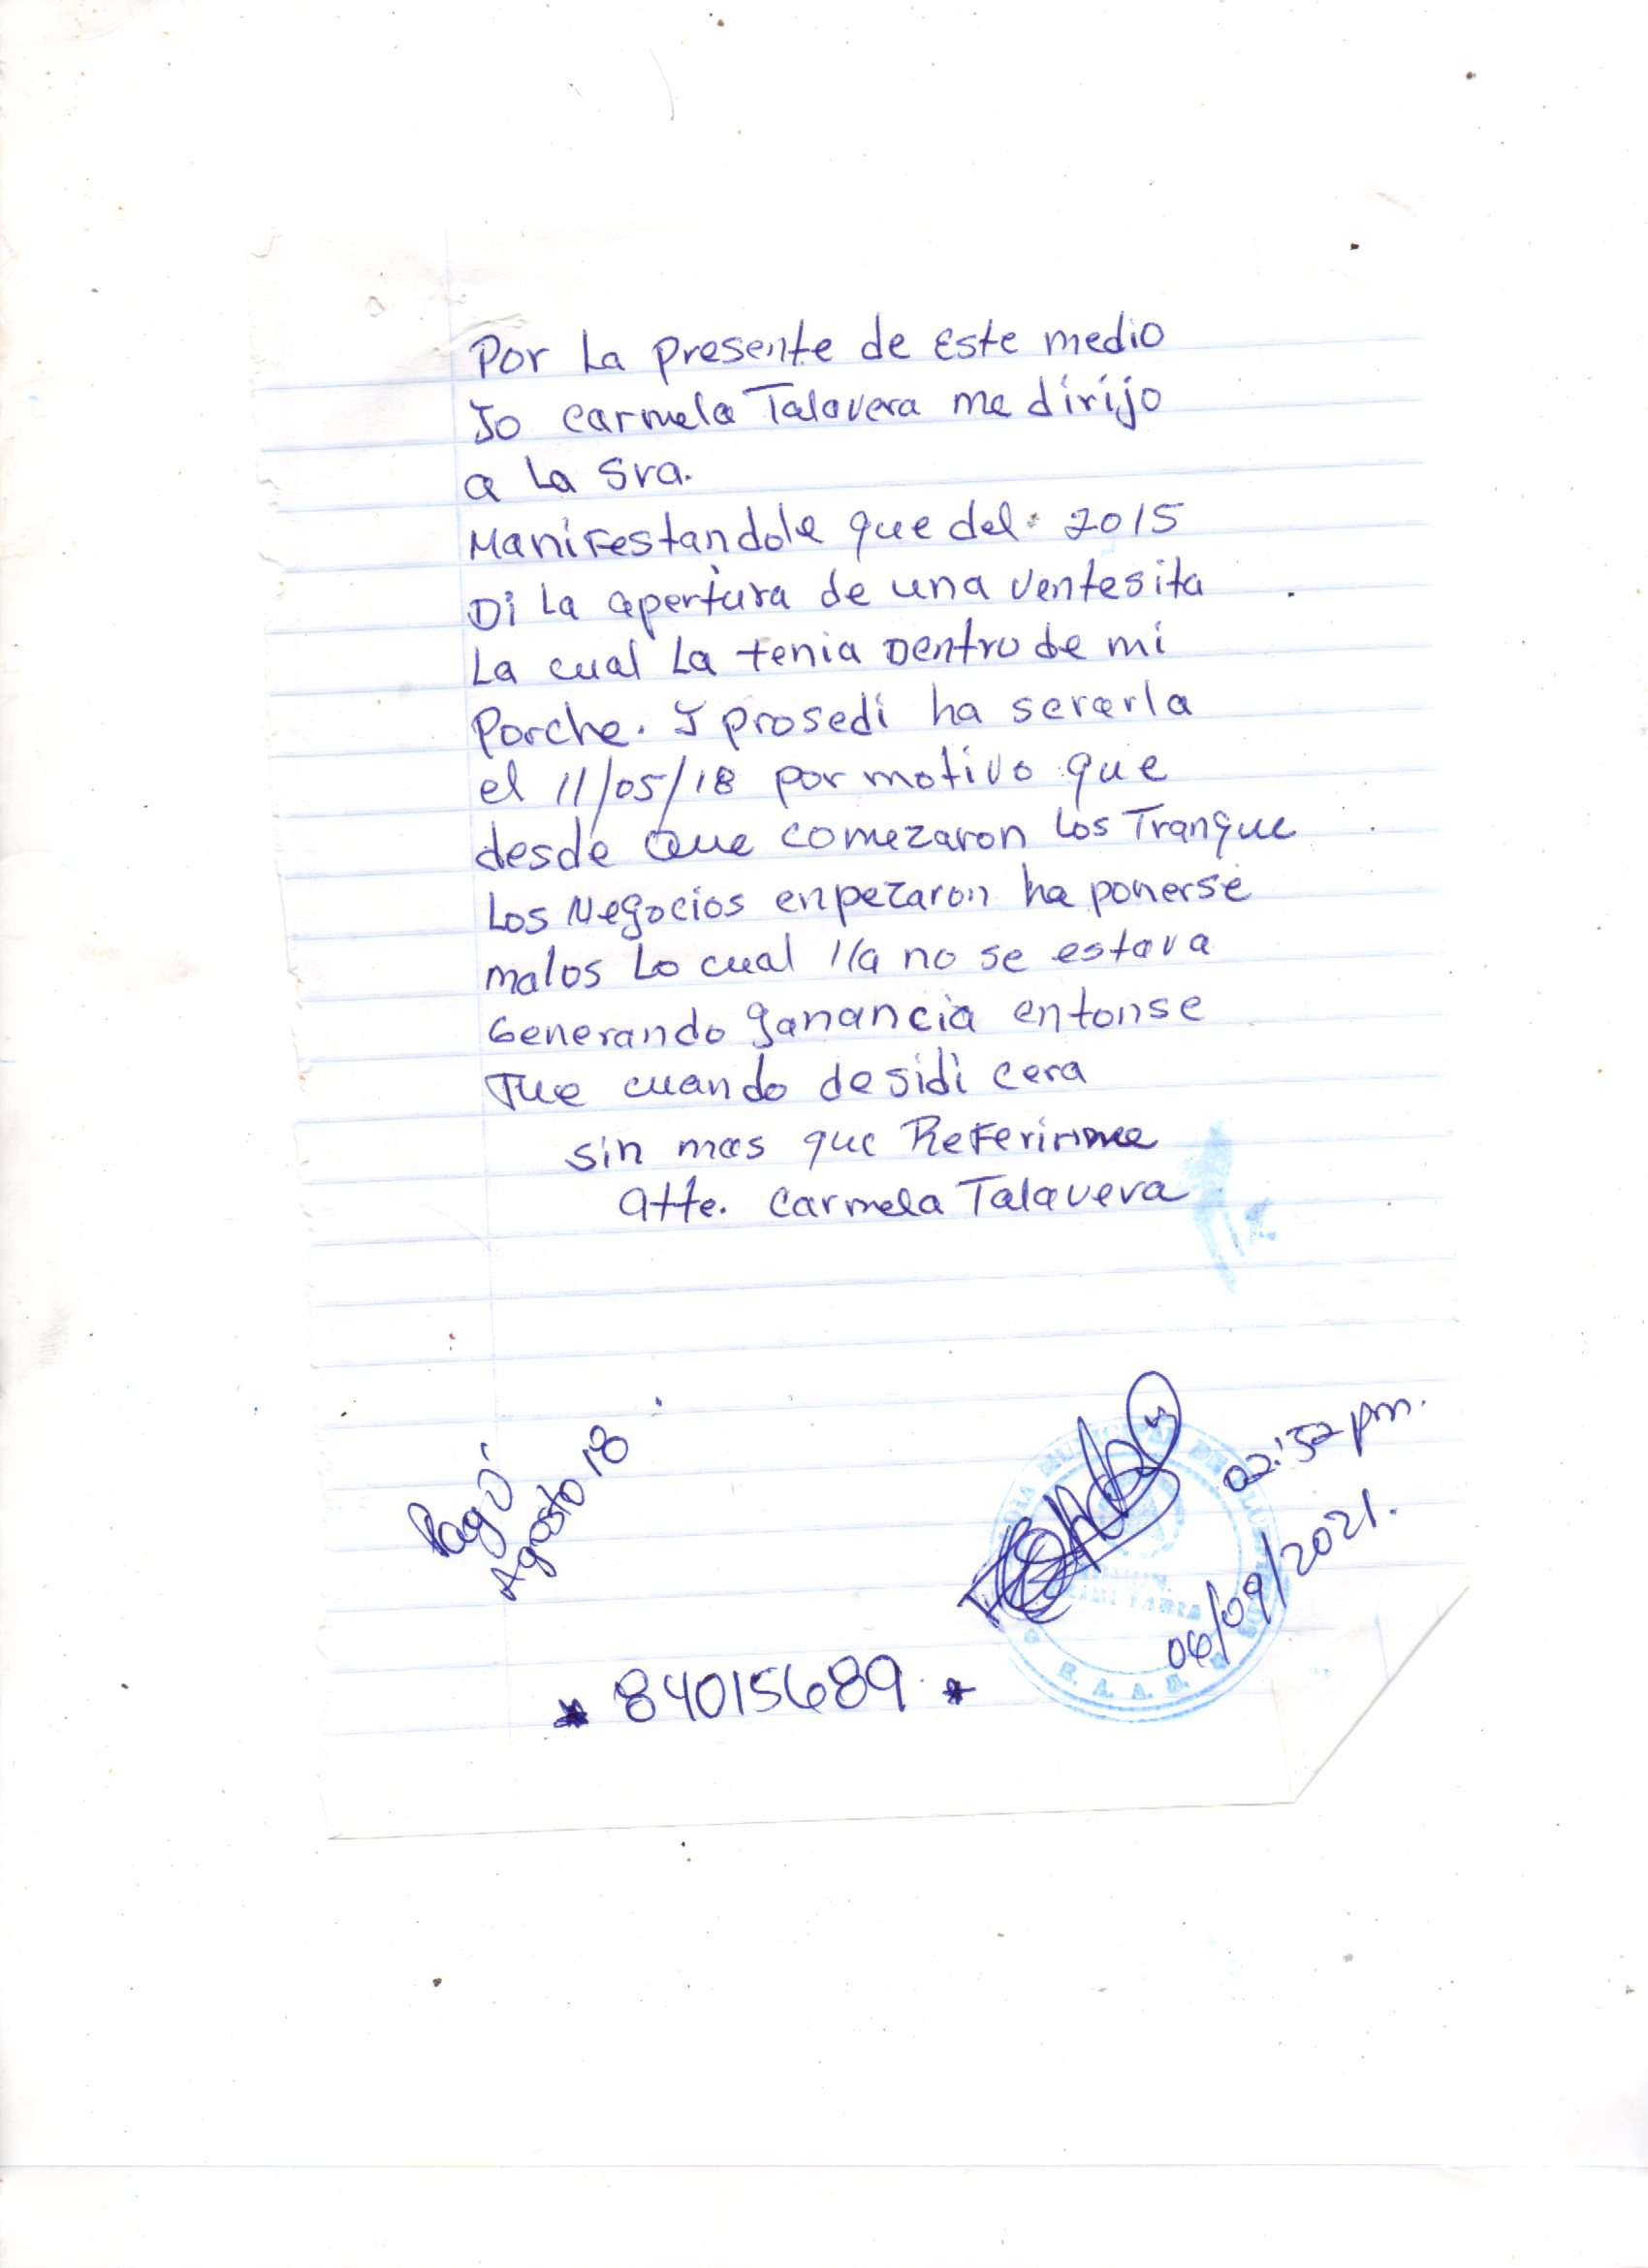 Por La presente de Este medio
Jo Carmela Talavera me dirijo
a La Sra.
Manifestandole que del 2015
Di La apertura de una ventesita
La cual La tenia Dentro de mi
Porche. J prosedi ha serarla
el 11/05/18 por motivo que
desde que comezaron Los Tranque
Los Negocios enpezaron ha ponerse
malos Lo cual lla no se estava
Generando ganancia entonse
Fue cuando desidi cera
sin mas que Referirme
atte. Carmela Talavera
Pagó
Agosto 18
02:52 pm.
06/09/2021.
* 84015689 *
R. A. A. S.